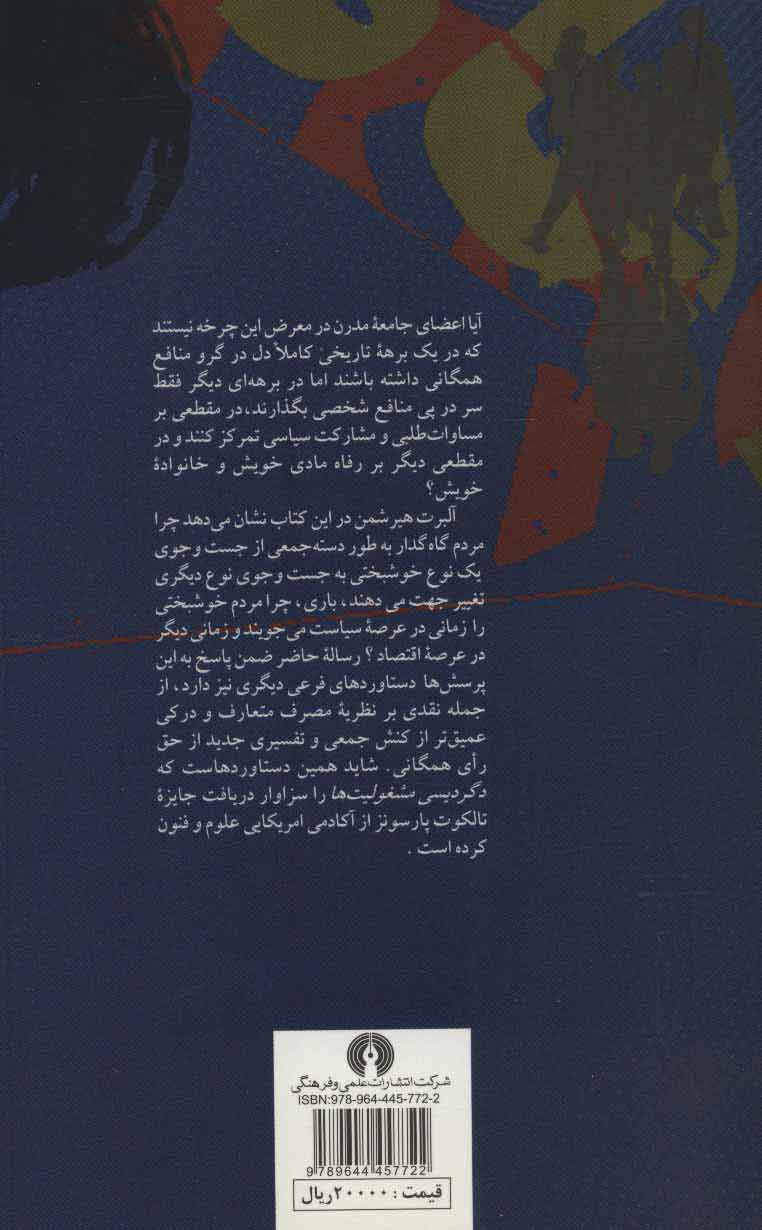 آیا اعضای جامعهٔ مدرن در معرض این چرخه نیستند
که در یک برههٔ تاریخی کاملاً دل در گرو منافع
همگانی داشته باشند اما در برهه‌ای دیگر فقط
سر در پی منافع شخصی بگذارند، در مقطعی بر
مساوات‌طلبی و مشارکت سیاسی تمرکز کنند و در
مقطعی دیگر بر رفاه مادی خویش و خانوادهٔ
خویش؟
آلبرت هیرشمن در این کتاب نشان می‌دهد چرا
مردم گاه‌گدار به طور دسته‌جمعی از جست وجوی
یک نوع خوشبختی به جست وجوی نوع دیگری
تغییر جهت می دهند، باری، چرا مردم خوشبختی
را زمانی در عرصهٔ سیاست می‌جویند و زمانی دیگر
در عرصهٔ اقتصاد؟ رسالهٔ حاضر ضمن پاسخ به این
پرسش‌ها دستاوردهای فرعی دیگری نیز دارد، از
جمله نقدی بر نظریهٔ مصرف متعارف و درکی
عمیق‌تر از کنش جمعی و تفسیری جدید از حق
رأی همگانی. شاید همین دستاوردهاست که
دگردیسی مشغولیت‌ها را سزاوار دریافت جایزهٔ
تالکوت پارسونز از آکادمی امریکایی علوم و فنون
کرده است.
شرکت انتشارات علمی و فرهنگی
ISBN:978-964-445-772-2
9 789644 457722
قیمت: ۲۰۰۰۰ ریال